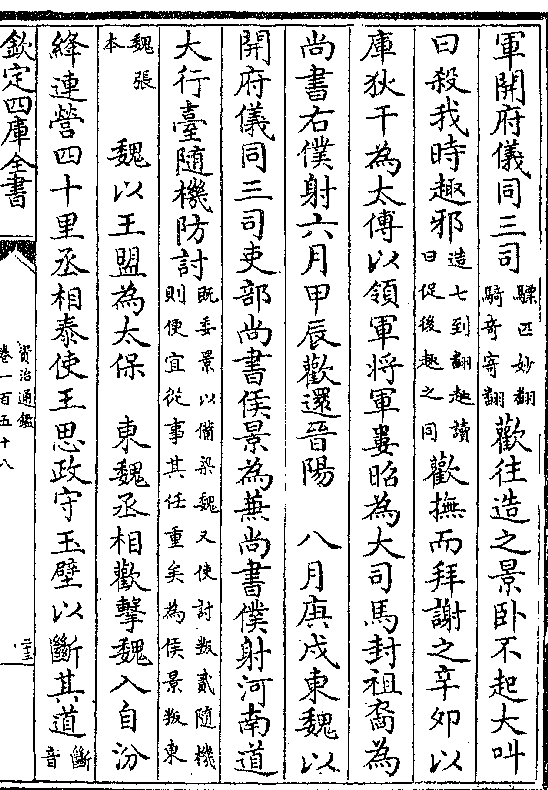 軍開府儀同三司驃匹妙翻騎奇寄翻歡往造之景卧不起大叫
曰殺我時趣邪造七到翻趣讀曰促後趣之同歡撫而拜謝之辛夘以
庫狄干為太傅以領軍将軍婁昭為大司馬封祖裔為
尚書右僕射六月甲辰歡還晉陽　八月庚戌東魏以
開府儀同三司吏部尚書侯景為兼尚書僕射河南道
大行臺隨機防討既委景以備梁魏又使討叛貳隨機則便宜從事其任重矣為侯景叛東
魏張本　魏以王盟為太保　東魏丞相歡擊魏入自汾
絳連營四十里丞相泰使王思政守玉壁以斷其道斷音
欽定四庫全書
資治通鑑
卷一百五十八